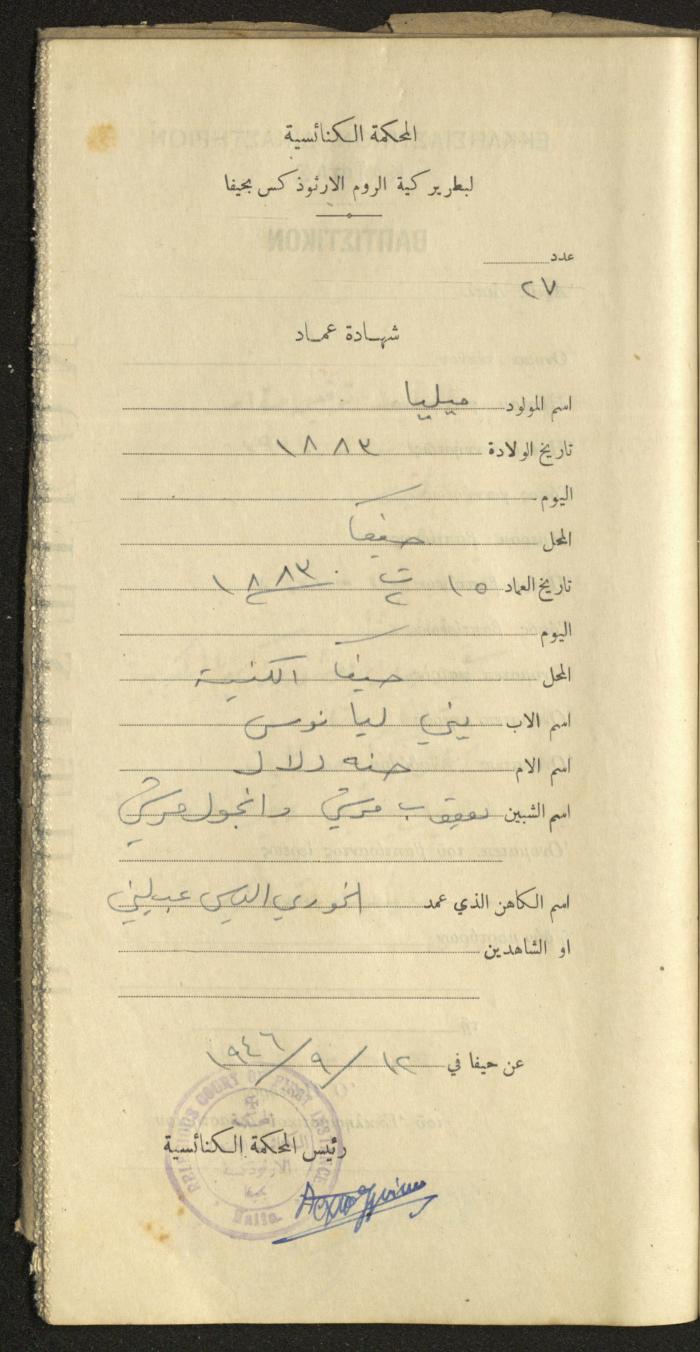 المحكمة الكنائسية
لبطريركية الروم الارثوذكس بحيفا
عدد
٢٧
شهادة عماد
اسم المولود ميليا
تاريخ الولادة ١٨٨٣
اليوم
المحل حيفا
تاريخ العماد ١٥ ت٢ ١٨٨٣
اليوم
المحل حيفا الكنيسة
اسم الاب يني ليانوس
اسم الام حنه دلال
اسم الشبين يعقوب وانجول
اسم الكاهن الذي عمد الخوري الياس
او الشاهدين
عن حيفا في ١٢/٩/١٩٤٦
رئيس المحكمة الكنائسية
RELIGIOUS COURT OF FIRST INSTANCE
Haifa